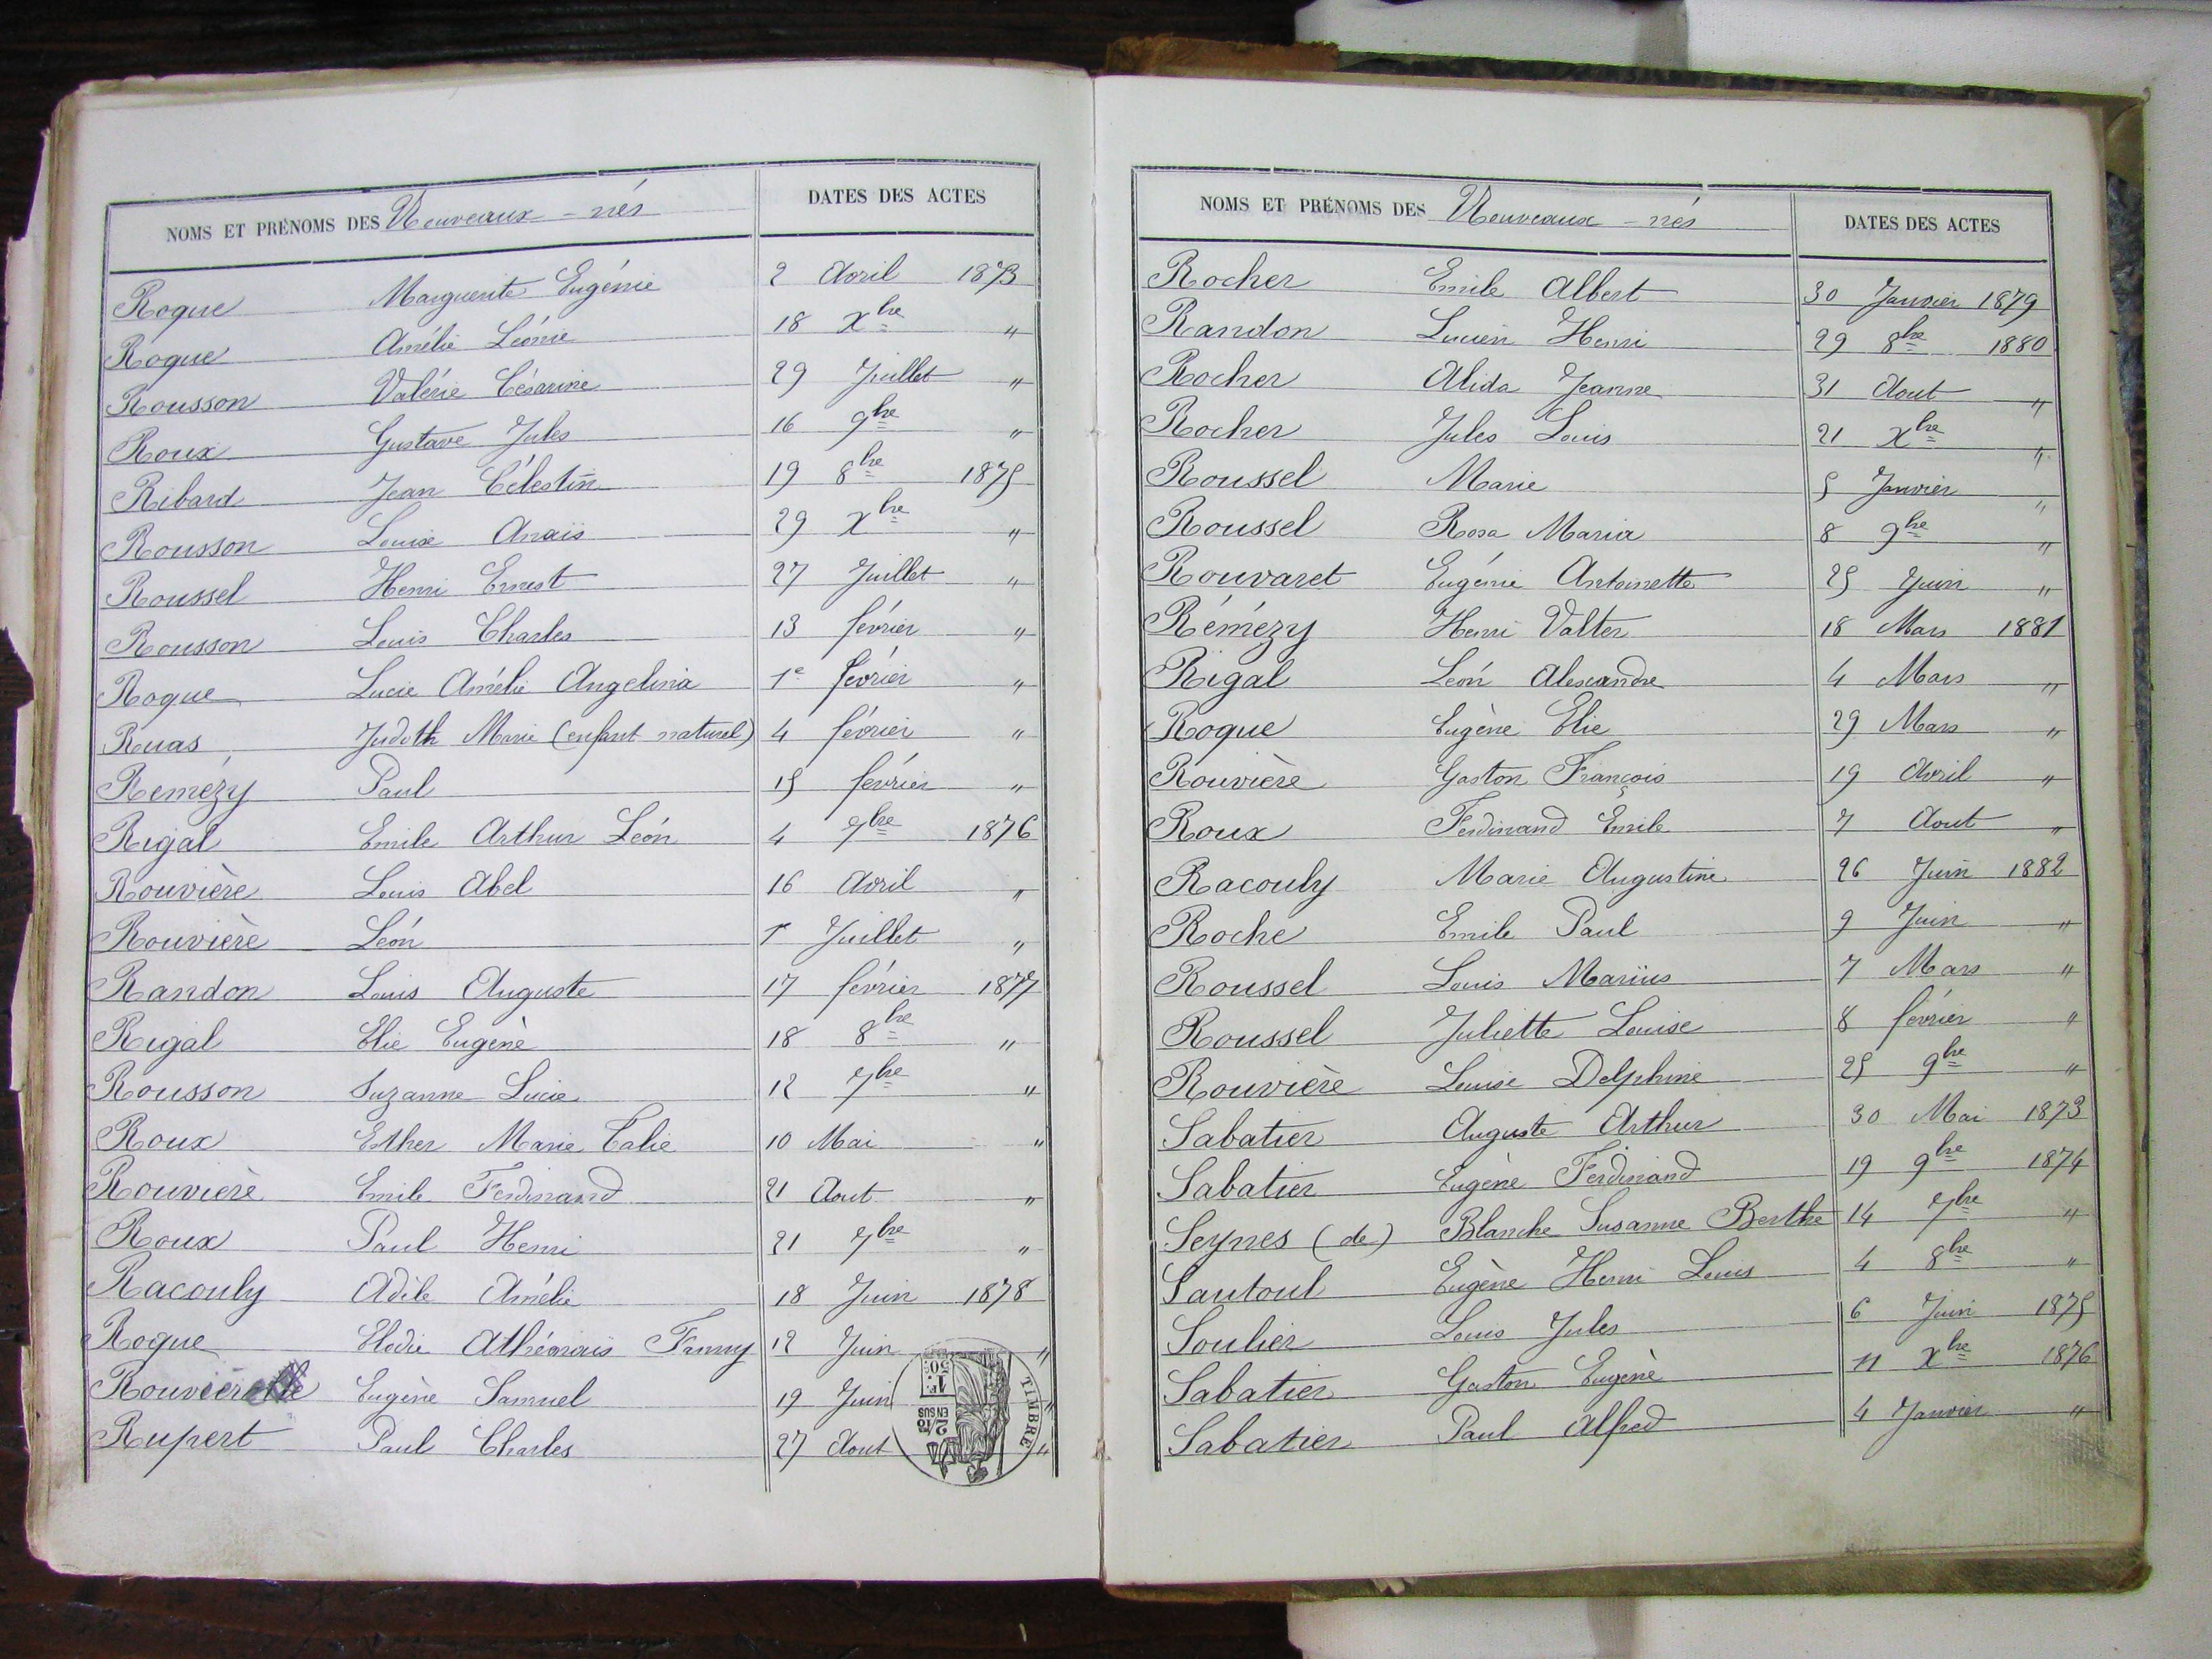 NOMS ET PRÉNOMS DES Nouveaux-nés DATES DES ACTES
Roque Marguerite Eugénie 2 Avril 1873
Roque Amélie Léonie 18 Xbre "
Rousson Valérie Césarine 29 Juillet "
Roux Gustave Jules 16 9bre "
Ribard Jean Célestin 19 8bre 1875
Rousson Louise Anaïs 29 Xbre "
Roussel Henri Ernest 27 Juillet "
Rousson Louis Charles 13 février "
Roque Lucie Amélie Angelina 1e février "
Ruas Judoth Marie (enfant naturel) 4 février "
Remézy Paul 15 février "
Rigal Emile Arthur Léon 4 7bre 1876
Rouvière Louis Abel 16 Avril "
Rouvière Léon 1r Juillet "
Randon Louis Auguste 17 février 1877
Rigal Elie Eugène 18 8bre "
Rousson Suzanne Lucie 12 7bre "
Roux Esther Marie Calie 10 Mai "
Rouvière Emile Ferdinand 21 Aout "
Roux Paul Henri 21 7bre "
Racouly Adèle Amélie 18 Juin 1878
Roque Elodie Athénaïs Fanny 12 Juin "
Rouvière Eugène Samuel 19 Juin "
Rupert Paul Charles 27 Aout "
TIMBRE
1F. 50c.
2/10 EN SUS
NOMS ET PRÉNOMS DES Nouveaux-nés DATES DES ACTES
Rocher Emile Albert 30 Janvier 1879
Randon Lucien Henri 29 8bre 1880
Rocher Alida Jeanne 31 Aout "
Rocher Jules Louis 21 Xbre "
Roussel Marie 5 Janvier "
Roussel Rosa Maria 8 9bre "
Rouvaret Eugénie Antoinette 25 Juin "
Rémézy Henri Valter 18 Mars 1881
Rigal Léon Alexandre 4 Mars "
Roque Eugène Elie 29 Mars "
Rouvière Gaston François 19 Avril "
Roux Ferdinand Emile 7 Aout "
Racouly Marie Augustine 26 Juin 1882
Roche Emile Paul 9 Juin "
Roussel Louis Marius 7 Mars "
Roussel Juliette Louise 8 février "
Rouvière Louise Delphine 25 9bre "
Sabatier Auguste Arthur 30 Mai 1873
Sabatier Eugène Ferdinand 19 9bre 1874
Seynes (de) Blanche Susanne Berthe 14 7bre "
Sautoul Eugène Henri Louis 4 8bre "
Soulier Louis Jules 6 Juin 1875
Sabatier Gaston Eugène 11 Xbre 1876
Sabatier Paul Alfred 4 Janvier "